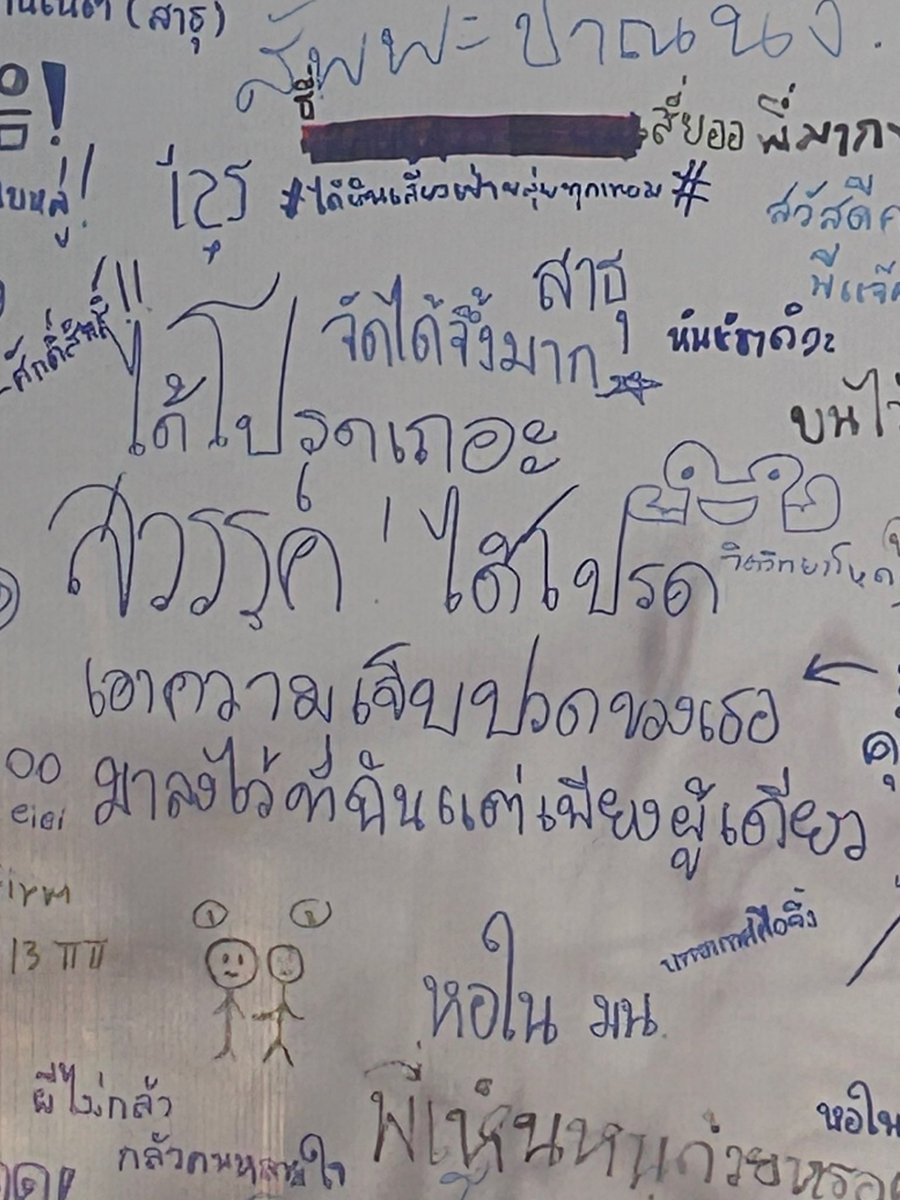 (สาธุ)
สัพพะปาณนัง.
สี่ยออ พี่มาก
#ได้ยินเสียวเป่าขลุ่ยทุกเทอม#
สวัสดีค
พี่แจ๊ค
สาธุ
จัดได้จึ้งมาก
ศักดิ์สิทธิ์!!
ได้โปรดเถอะ
บนไว้
สวรรค์ ! ได้โปรด
เอาความเจ็บปวดของเธอ
มาลงไว้ที่ฉันแต่เพียงผู้เดียว
eiei
13
บรรยากาศคือจึ้ง
หอใน มน.
ผีไม่กลัว
กลัวคนหลายใจ
พี่เห็นหนูด้วยหรอ
หอใน